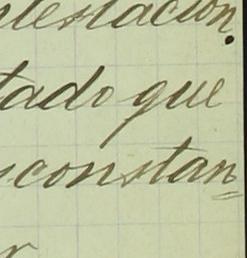 ntestación.
tado que
sconstan=
r